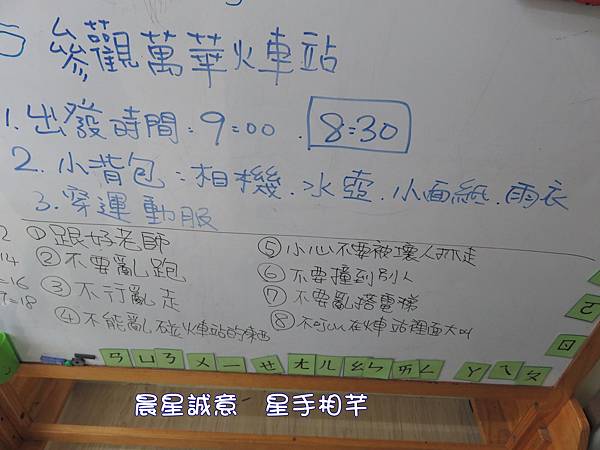 參觀萬華火車站
1. 出發時間:9:00. 8:30
2. 小背包:相機.水壺.小面紙.雨衣
3. 穿運動服
① 跟好老師
② 不要亂跑
③ 不行亂走
④ 不能亂碰火車站的東西
⑤ 小心不要被壞人抓走
⑥ 不要撞到別人
⑦ 不要亂搭電梯
⑧ 不可以在火車站裡面大叫
14
=16
=18
ㄢ ㄩ ㄋ ㄨ ㄧ ㄝ ㄤ ㄦ ㄠ ㄣ ㄞ ㄥ ㄚ ㄟ ㄆ
ㄖ
ㄛ
晨星誠意 星手相芊